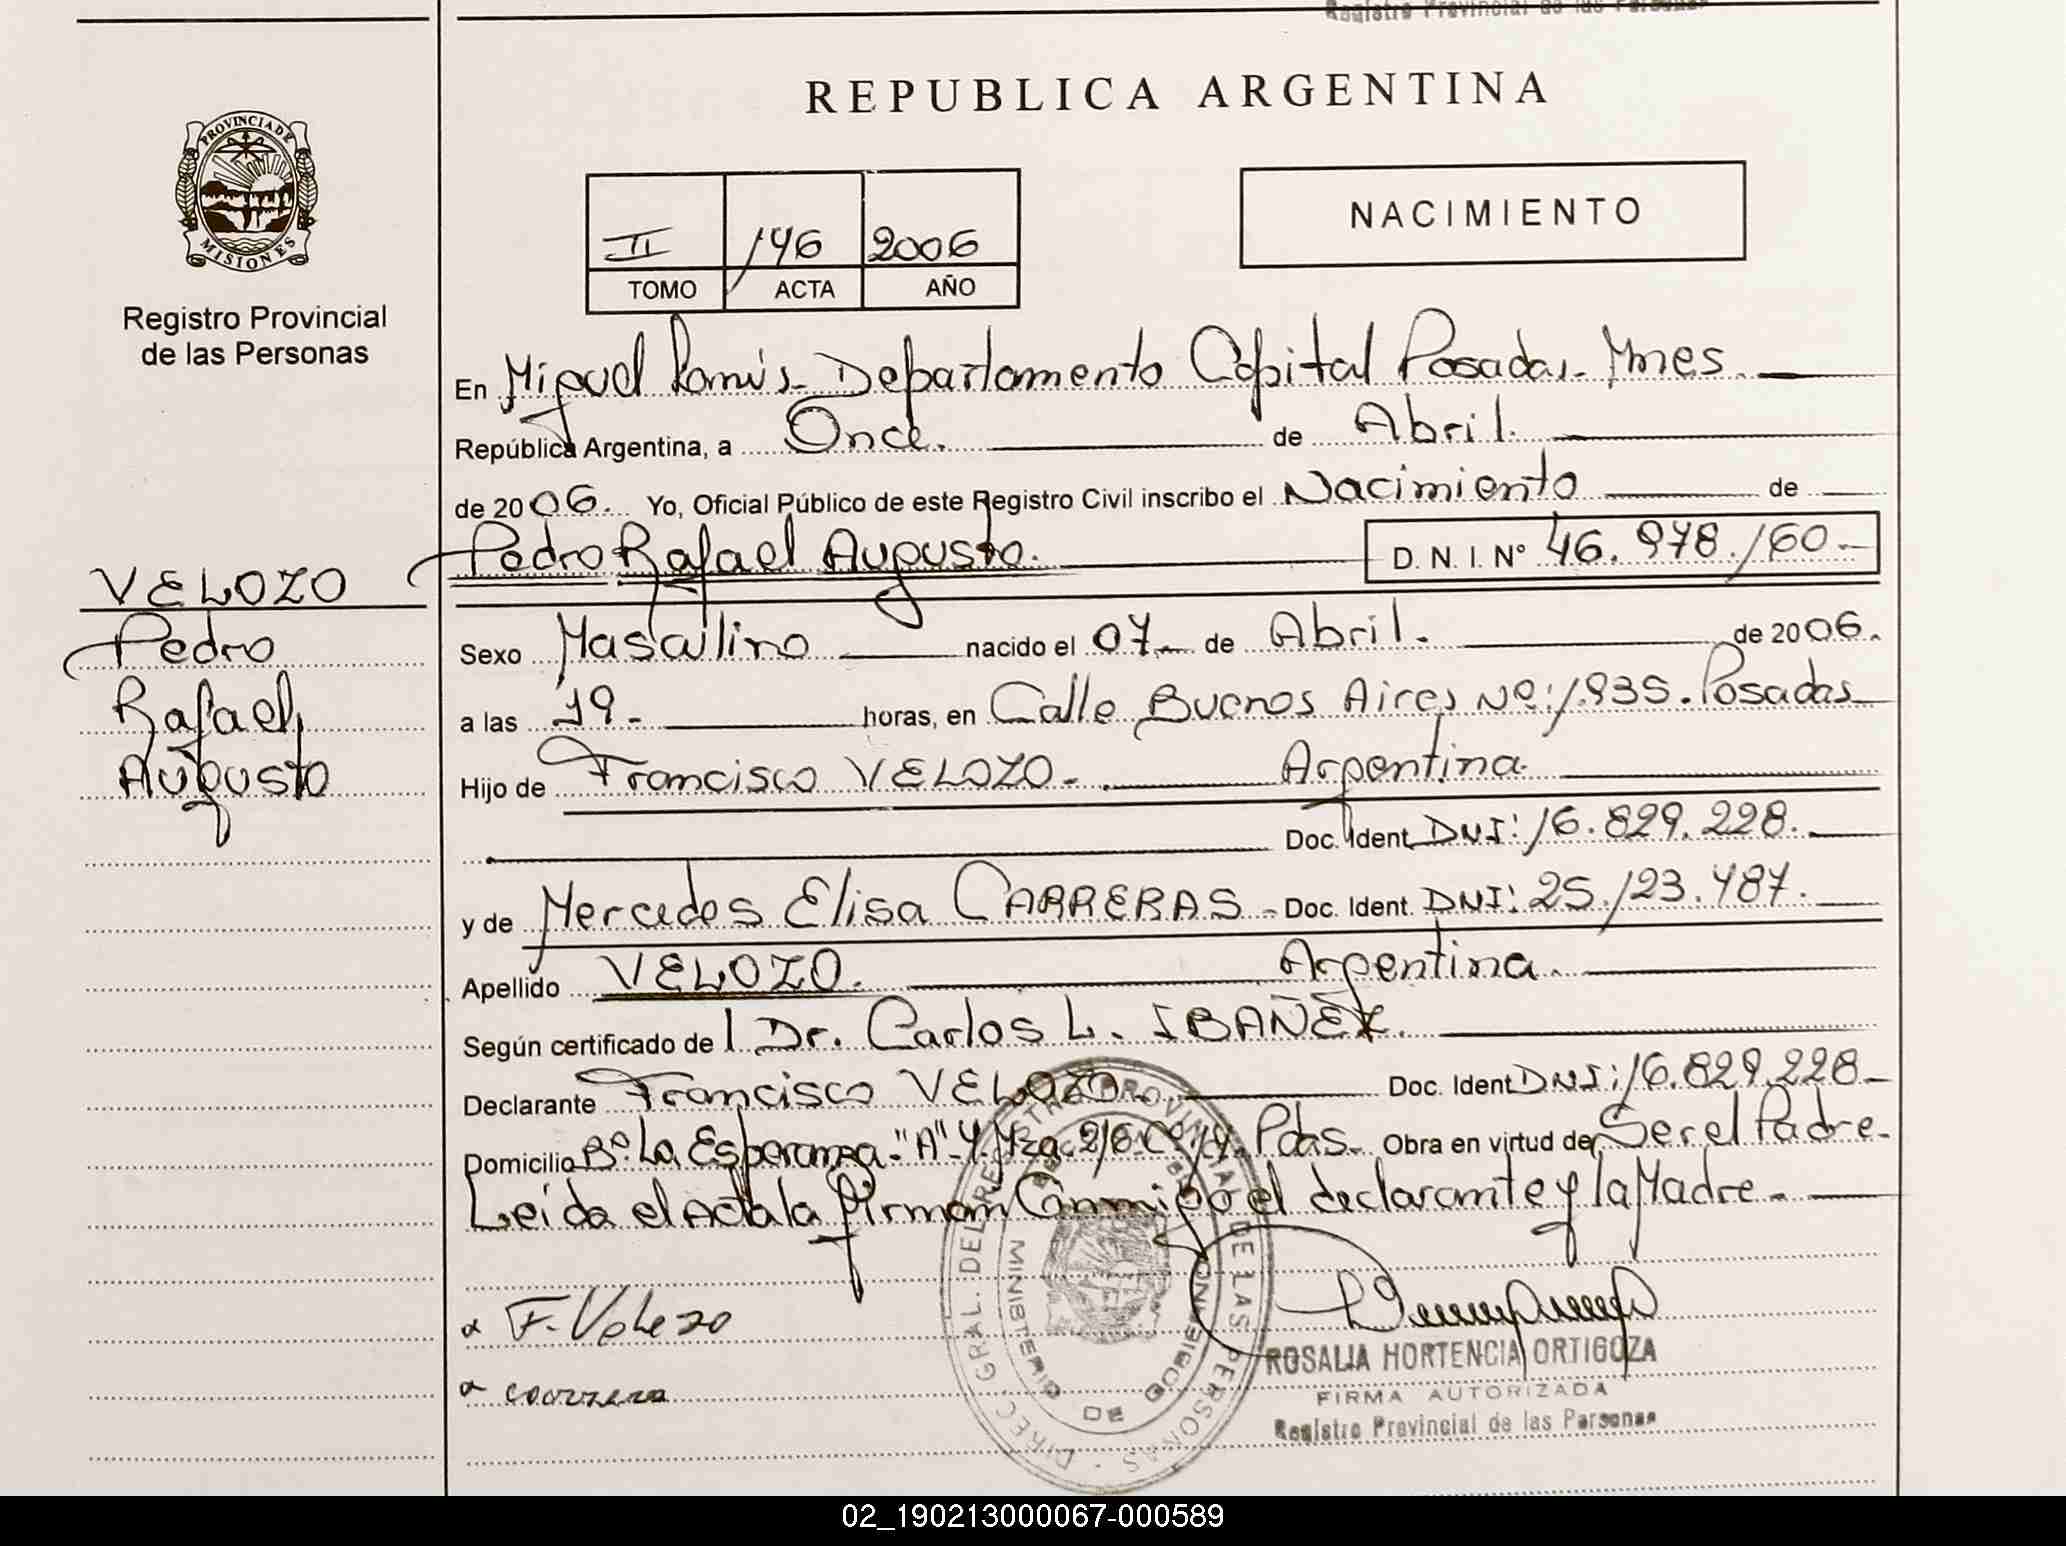 Registro Provincial de las Personas
REPUBLICA ARGENTINA
PROVINCIA DE
MISIONES
Registro Provincial
de las Personas
NACIMIENTO
II 146 2006
TOMO ACTA AÑO
En Miguel Lanús - Departamento Capital Posadas - Mnes.
República Argentina, a Once. de Abril.
de 2006. Yo, Oficial Público de este Registro Civil inscribo el Nacimiento de
Pedro Rafael Augusto. D. N. I. Nº 46.978.160.-
VELOZO
Pedro
Rafael
Augusto
Sexo Masculino nacido el 07 de Abril. de 2006.
a las 19 - horas, en Calle Buenos Aires Nº: 1.935. Posadas
Hijo de Francisco VELOZO - Argentina.
Doc. Ident. DNI: 16.829.228.
y de Mercedes Elisa CARRERAS - Doc. Ident. DNI: 25.123.487.
Apellido VELOZO. Argentina.
Según certificado de l Dr. Carlos L. IBAÑEZ.
Declarante Francisco VELOZO Doc. Ident. DNI: 16.829.228 -
Domicilio Bº La Esperanza - "A" 4. Mza 216 Cº 14. Pdas - Obra en virtud de Ser el Padre -
Leída el Acta la firman Conmigo el declarante y la Madre -
F. Velozo
ROSALIA HORTENCIA ORTIGOZA
FIRMA AUTORIZADA
Registro Provincial de las Personas
DIREC. GRAL. DEL REGISTRO PROVINCIAL DE LAS PERSONAS
MINISTERIO DE GOBIERNO
02_190213000067-000589